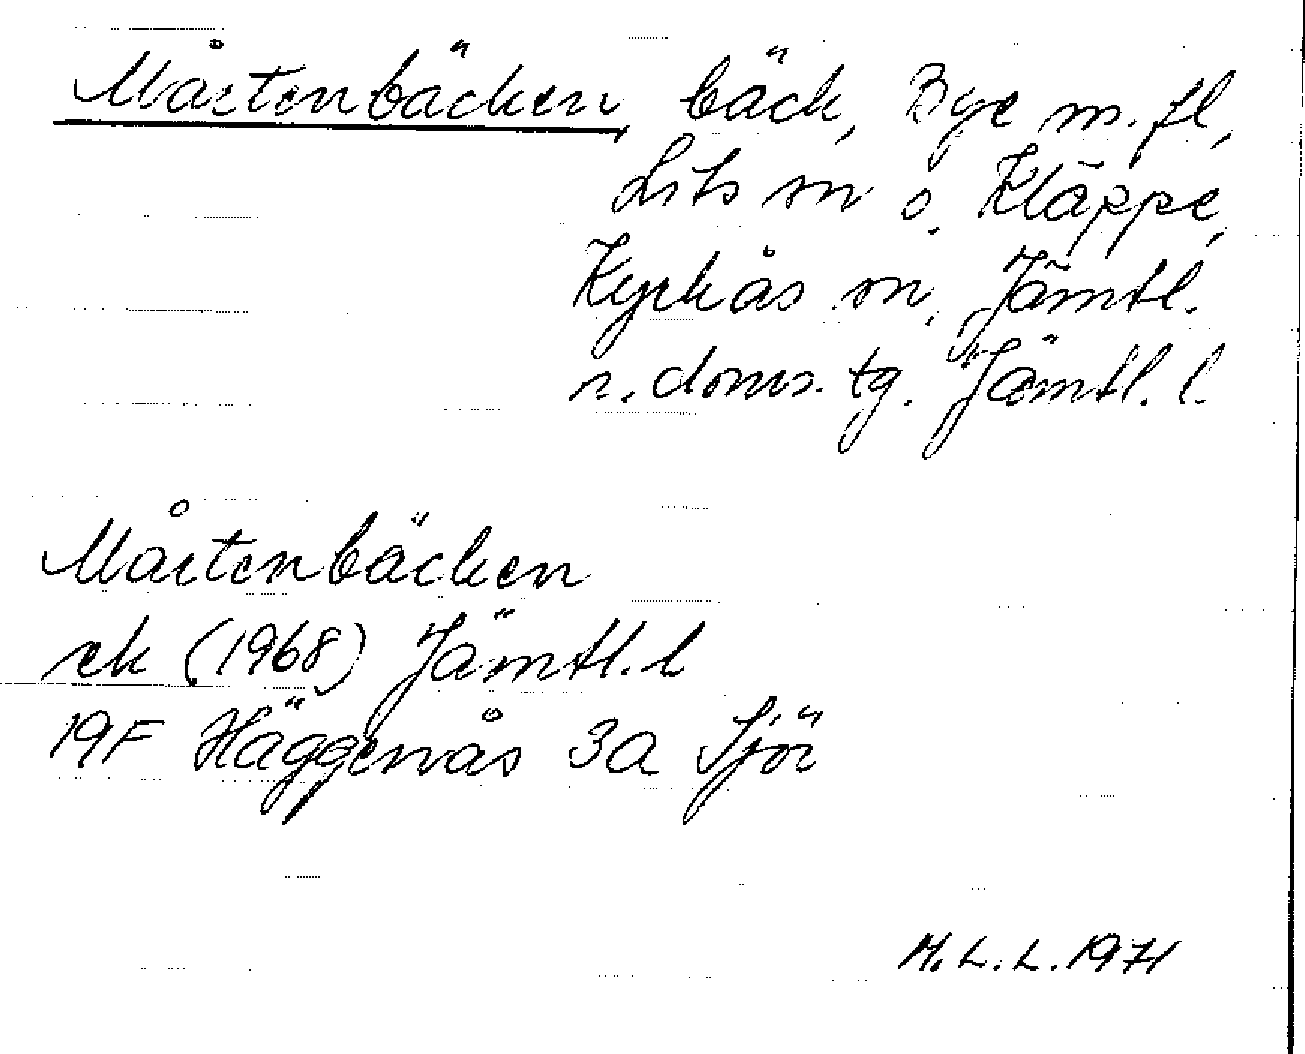 Mårtenbäcken, bäck, Bye m. fl,
Lits sn o. Kläppe,
Kyrkås sn, Jämtl.
n. doms. tg. Jämtl. l.
Mårtenbäcken
ek (1968) Jämtl. l
19F Häggenås 3a Sjör
M. L. L. 1971